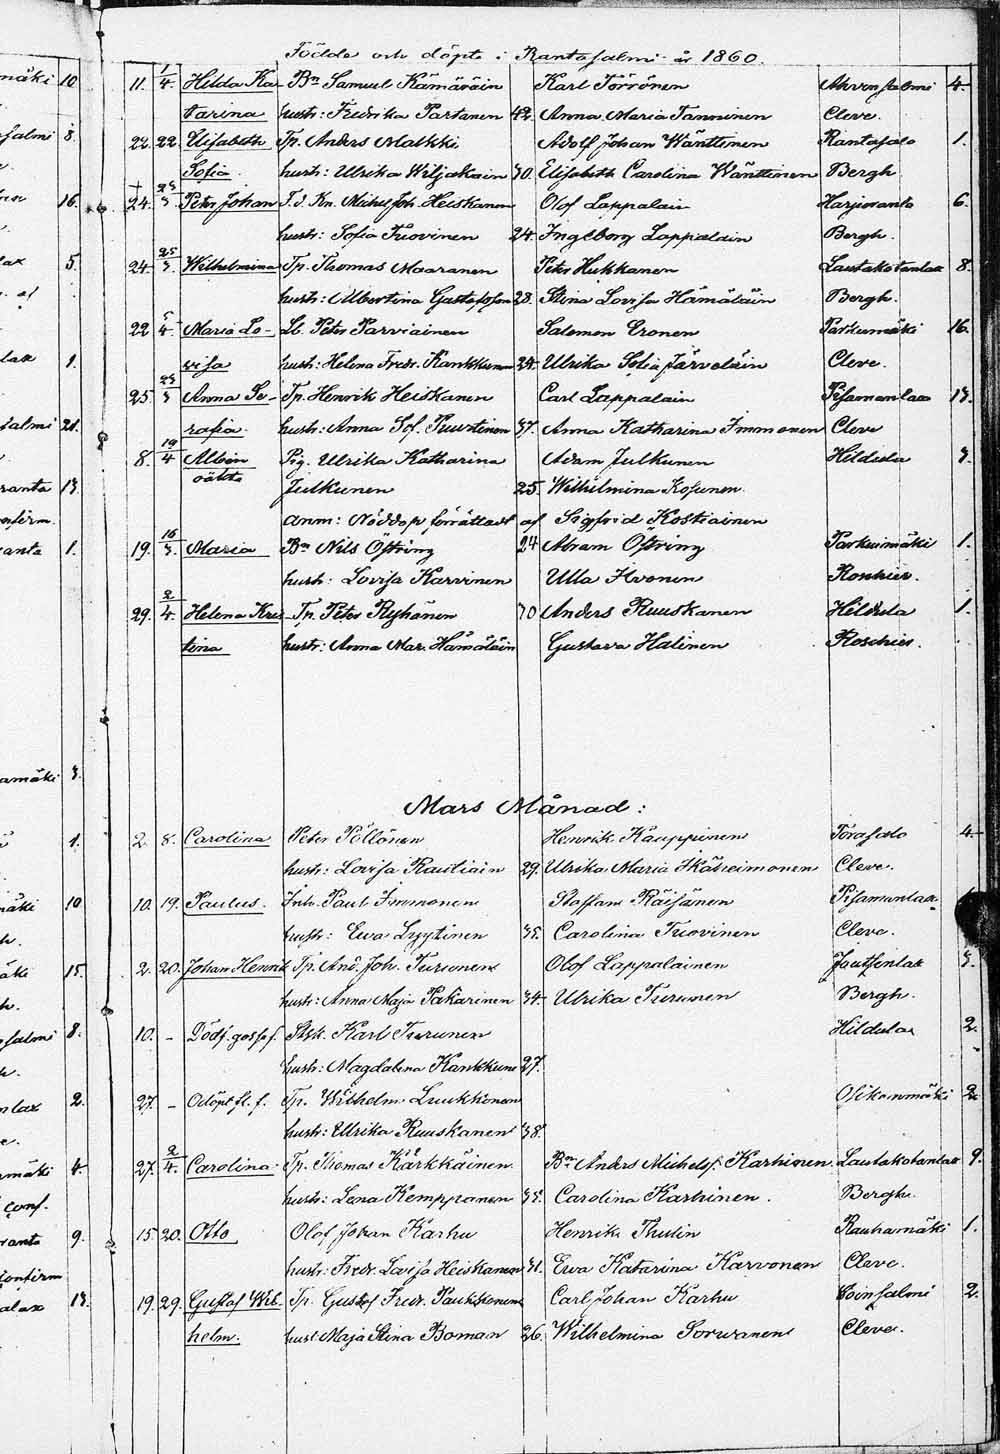 Födde och döpte i Rantasalmi år 1860.
11. 1/4. Hilda Ka- Bn Samuel Kämäräin Karl Törrönen Ahvensalmi 4.
tarina hustr: Fredrika Partanen 42. Anna Maria Tanninen Cleve.
22. 22. Elisabeth Tp. Anders Malkki Adolf Johan Wänttinen Rantasalo 1.
Sofia. hustr: Ulrika Wiljakain 30. Elisabeth Carolina Wänttinen Bergh
+ 24. 25/3 Peter Johan T.d. Kn. Michel Joh. Heiskanen Olof Lappalain Harjuranta 6.
hustr: Sofia Tuovinen 24. Ingeborg Lappalain Bergh.
24. 25/3. Wilhelmina Tp. Thomas Maaranen Peter Hukkanen Lautakotanlax 8.
hustr: Albertina Gustafsson 28. Stina Lovisa Hämäläin Bergh.
22 5/4. Maria Lo- Lb. Peter Parviainen Salomon Eronen Parkumäki 16.
visa hustr: Helena Fredr. Kankkunen 24. Ulrika Sofia Järveläin Cleve.
25. 25/3 Anna Se- Tp. Henrik Heiskanen Carl Lappalain Pisamanlax 13.
rafia. hustr: Anna Sof. Puustinen 37. Anna Katharina Immonen Cleve
8. 19/4 Albin Pig. Ulrika Katharina Adam Julkunen Hildula 3.
oäkta Julkunen 25. Wilhelmina Kosunen.
anm: Nöddop förrättadt af Sigfrid Kostiainen
19. 16/3. Maria Bn Nils Östring 24 Abram Östring Parkuimäki 1.
hustr: Lovisa Karvinen Ulla Hvonen Roschier.
29. 2/4. Helena Kris- Tp. Peter Ryhänen 30 Anders Ruuskanen Hildula 1.
tina hustr: Anna Mar. Hämäläin Gustava Halinen Roschier.
Mars Månad:
2. 8. Carolina Peter Pöllönen Henrik Kauppinen Torasalo 4.
hustr: Lovisa Rautiain 29. Ulrika Maria Ikäheimonen Cleve.
10. 19. Paulus. Inh. Paul Immonen Staffan Räisänen Pisamanlax
hustr: Ewa Lyytinen 35. Carolina Tuovinen Cleve.
2. 20. Johan Henrik Tp. And. Joh. Turunen Olof Lappalainen Joutsenlax 3.
hustr: Anna Maja Pakarinen 34. Ulrika Turunen Bergh.
10. - Dödf. gosse f. Karl Turunen Hildula 2.
hustr: Magdalena Kankkune 27.
27. - Odöpt fl. f. Tp. Wilhelm Luukkonen Osikonmäki 2.
hustr: Ulrika Ruuskanen 38.
27. 2/4. Carolina Tp. Thomas Kärkkäinen. Bn Anders Michelsf. Karhinen Lautakotanlax 9.
hustr: Lena Kemppanen 35. Carolina Karhinen. Bergh.
15. 20. Otto Olof Johan Karhu Henrik Thulin Rauhamäki 1.
hustr: Fredr. Lovisa Heiskanen 31. Ewa Katarina Karvonen Cleve.
19. 29. Gustaf Wil- Tp. Gustaf Fredr. Paukkonen Carl Johan Karhu Voinsalmi 2.
helm. hustr Maja Stina Boman 26. Wilhelmina Sorwanen Cleve.